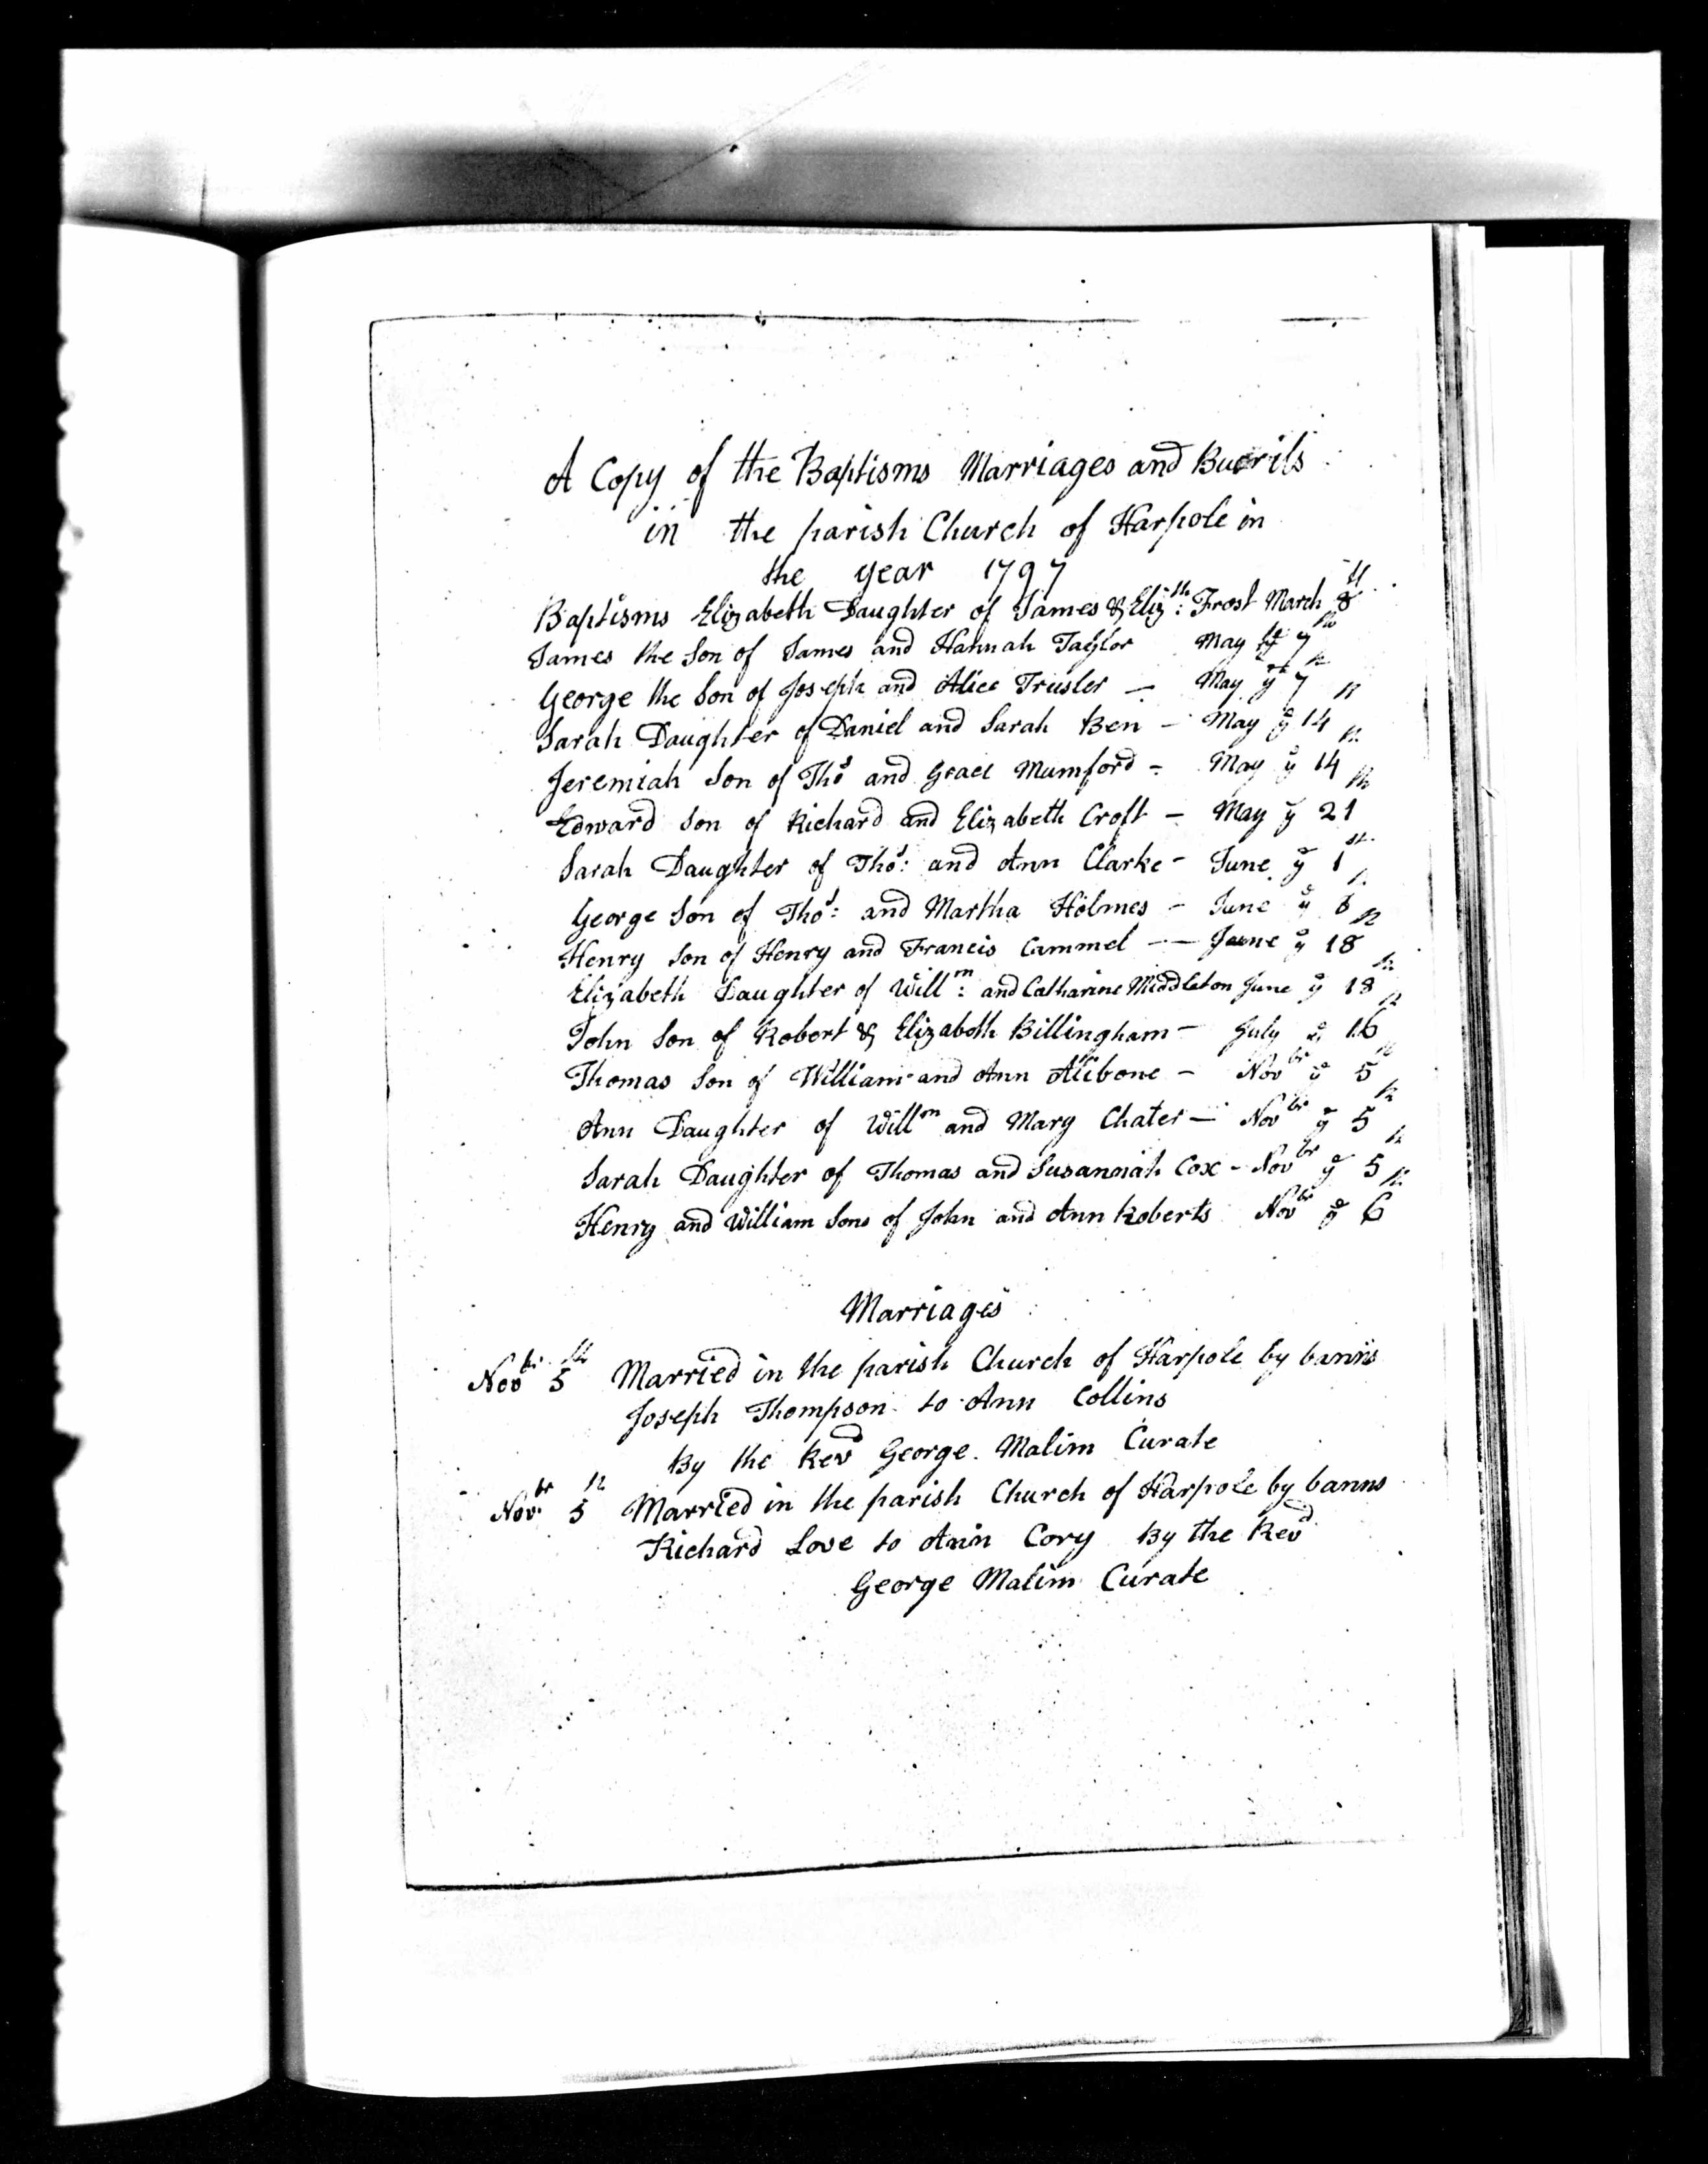 A Copy of the Baptisms Marriages and Buerils
in the parish Church of Harpole in
the year 1797
Baptisms Elizabeth Daughter of James & Eliz:th Frost March 8th
James the Son of James and Hannah Taylor May ye 7th
George the Son of Joseph and Alice Trusler — May ye 7th
Sarah Daughter of Daniel and Sarah Ben – May ye 14th
Jeremiah Son of Thos and Grace Mumford – May ye 14th
Edward Son of Richard and Elizabeth Croft – May ye 21st
Sarah Daughter of Thos: and Ann Clarke – June ye 1st
George Son of Thos: and Martha Holmes – June ye
Henry Son of Henry and Francis Cammel –— June ye 18th
Elizabeth Daughter of Will:m and Catharine Middleton June ye 18th
John Son of Robert & Elizabeth Billingham – July ye 16th
Thomas Son of William and Ann Alibone – Novbr ye 5th
Ann Daughter of Willm and Mary Chater — Novbr ye 5th
Sarah Daughter of Thomas and Susannah Cox – Novbr ye 5th
Henry and William Sons of John and Ann Roberts Novbr ye 6th
Marriages
Novbr 5th Married in the parish Church of Harpole by banns
Joseph Thompson to Ann Collins
By the Revd George Malim Curate
Novbr 5th Married in the parish Church of Harpole by banns
Richard Love to Ann Cory By the Revd
George Malim Curate